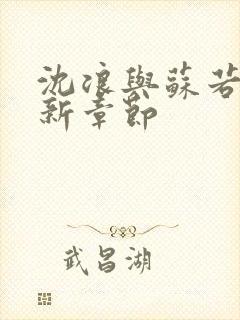 沈浪與蘇若
新章節
武昌湖